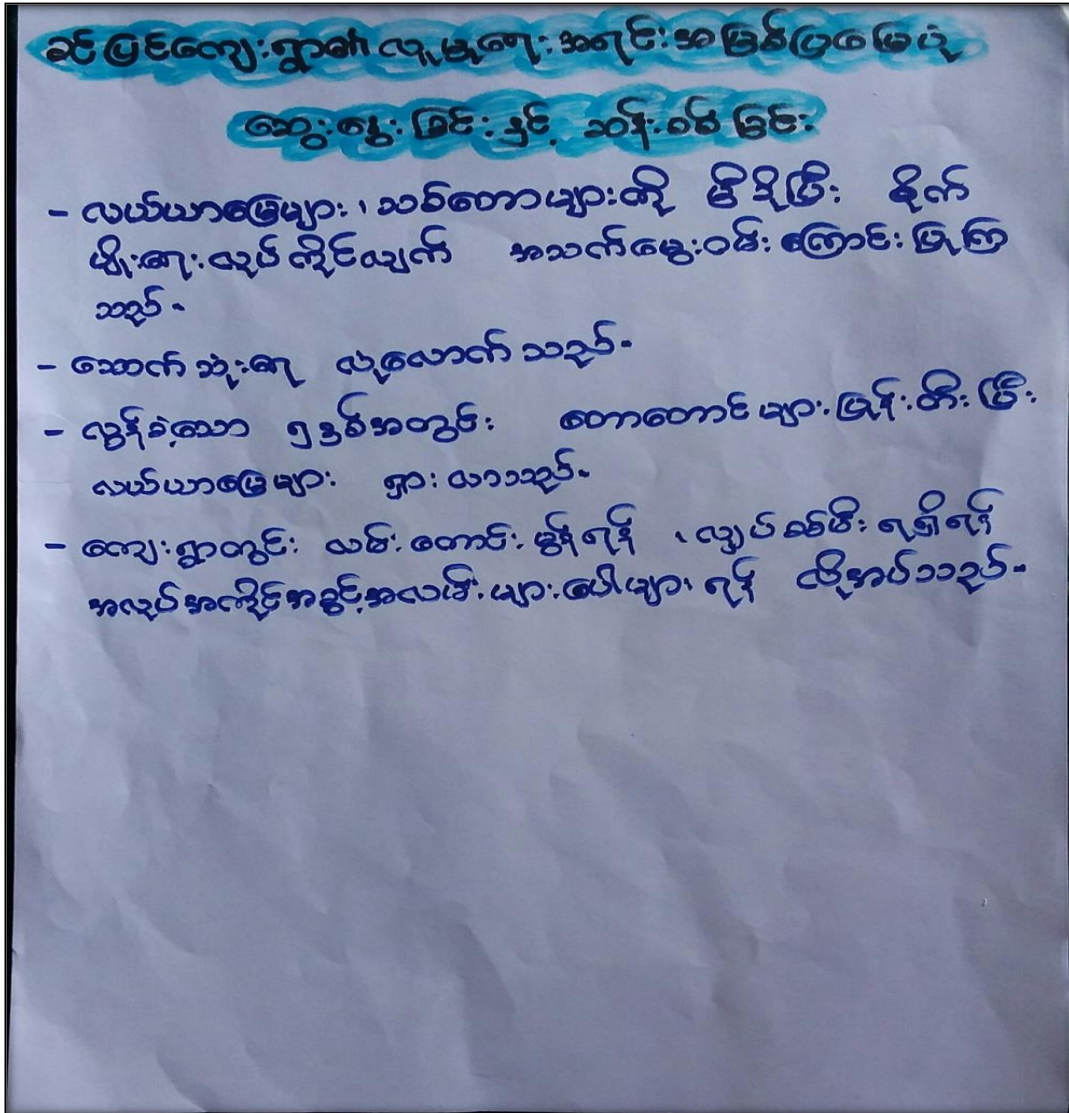 ခင်ပြင်ကျေးရွာ၏ လူမှုရေးအရင်းအမြစ်ပြမြေပုံ
ဆွေးနွေးခြင်းနှင့် ဆန်းစစ်ခြင်း
- လယ်ယာမြေများ၊ သစ်တောများကို မီးရှို့ပြီး စိုက်
မျိုးရေးလုပ်ကိုင်လျက် အသက်မွေးဝမ်းကြောင်းပြုကြ
သည်။
- သောက်သုံးရေ လုံလောက်သည်။
- လွန်ခဲ့သော ၅နှစ်အတွင်း တောတောင်များပြုန်းတီးပြီး
လယ်ယာမြေများ ရှားလာသည်။
- ကျေးရွာတွင်း လမ်းကောင်းမွန်ရန် ၊ လျှပ်စစ်မီးရရှိရန်
အလုပ်အကိုင်အခွင့်အလမ်းများပေါများရန် လိုအပ်သည်။